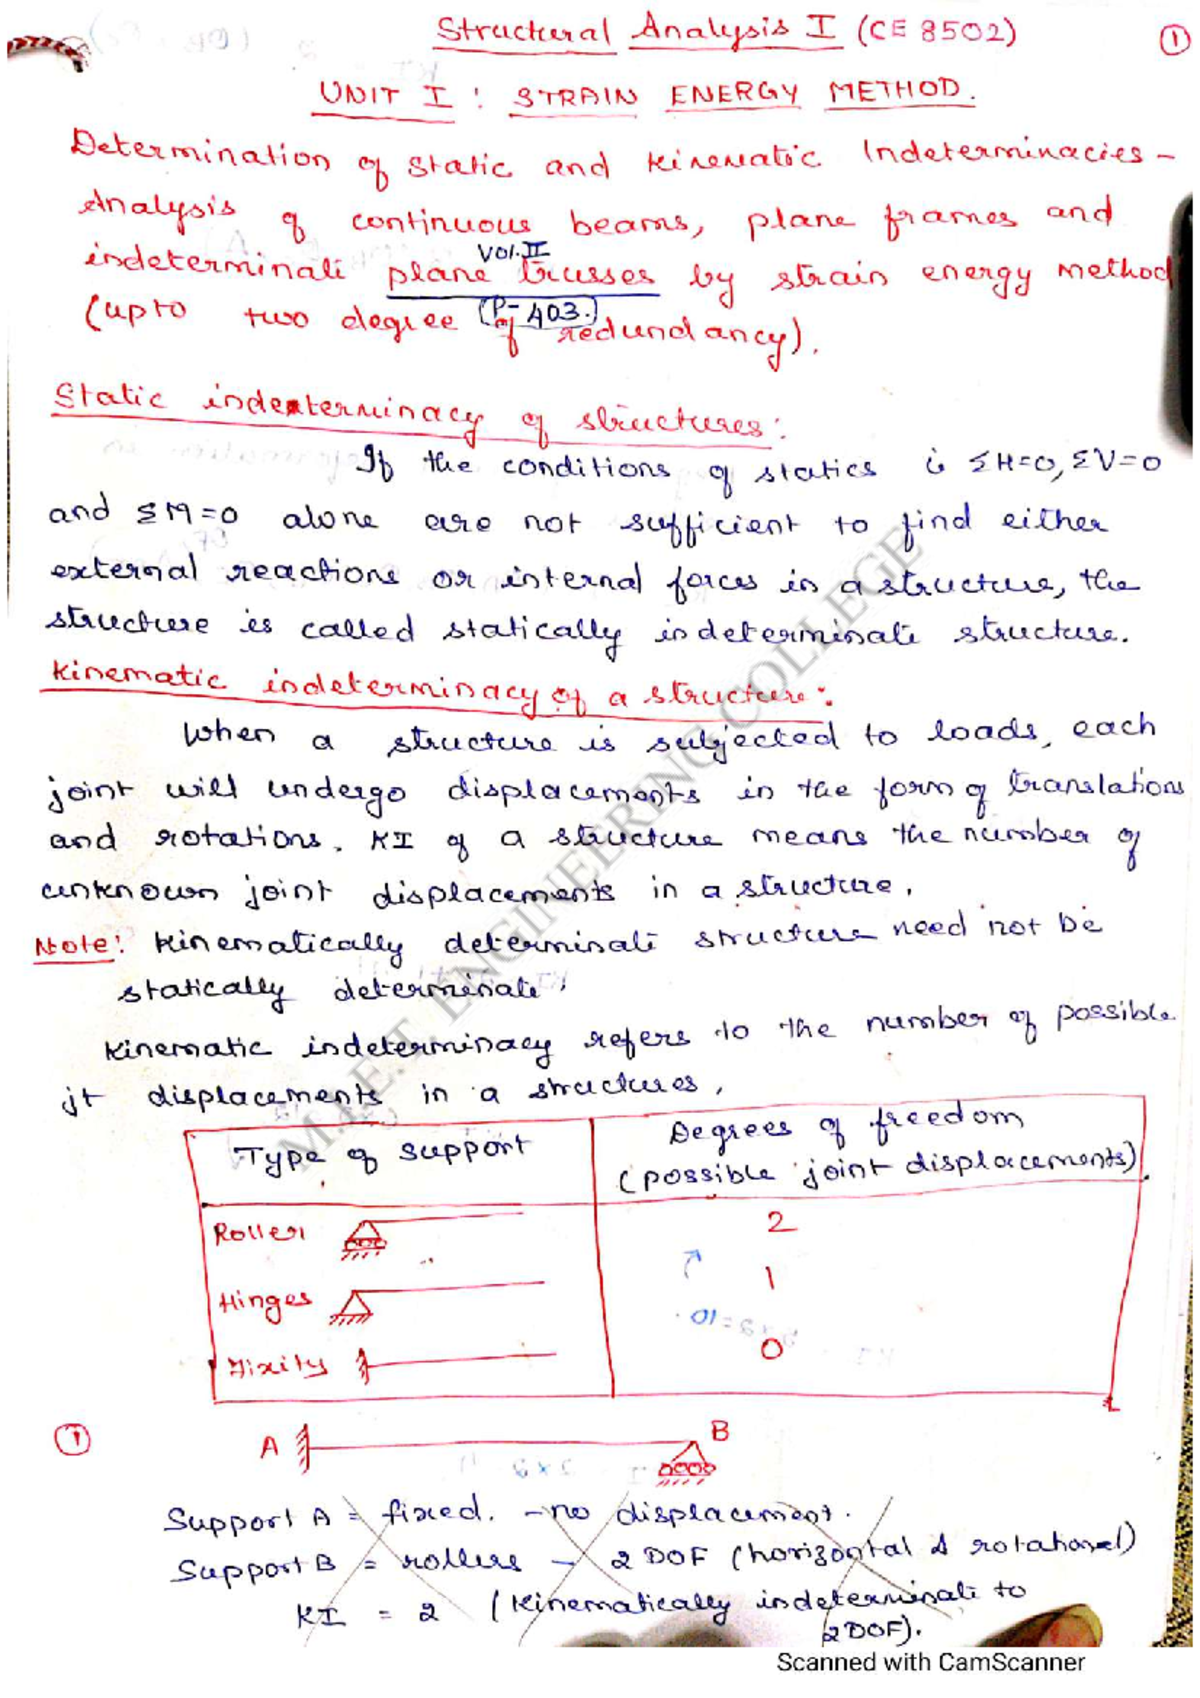 Structural Analysis I (CE 8502)
1
UNIT I : STRAIN ENERGY METHOD.
Determination of static and kinematic Indeterminacies -
Analysis of continuous beams, plane frames and
Vol.II
indeterminate plane trusses by strain energy method
(P-403.)
(upto two degree of redundancy).
Static indeterminacy of structures:
If the conditions of statics is ΣH=0, ΣV=0
and ΣM=0 alone are not sufficient to find either
external reactions or internal forces in a structure, the
structure is called statically indeterminate structure.
Kinematic indeterminacy of a structure:
When a structure is subjected to loads, each
joint will undergo displacements in the form of translations
and rotations. KI of a structure means the number of
unknown joint displacements in a structure.
Note: Kinematically determinate structure need not be
statically determinate.
Kinematic indeterminacy refers to the number of possible
jt displacements in a structures.
Type of support
Degrees of freedom
(possible joint displacements).
Roller
2
Hinges
1
Fixity
0
1
A
B
Support A = fixed. - no displacement.
Support B = rollers - 2 DOF (horizontal & rotational)
KI = 2 (Kinematically indeterminate to
2 DOF).
M.I.E.T. ENGINEERING COLLEGE
Scanned with CamScanner